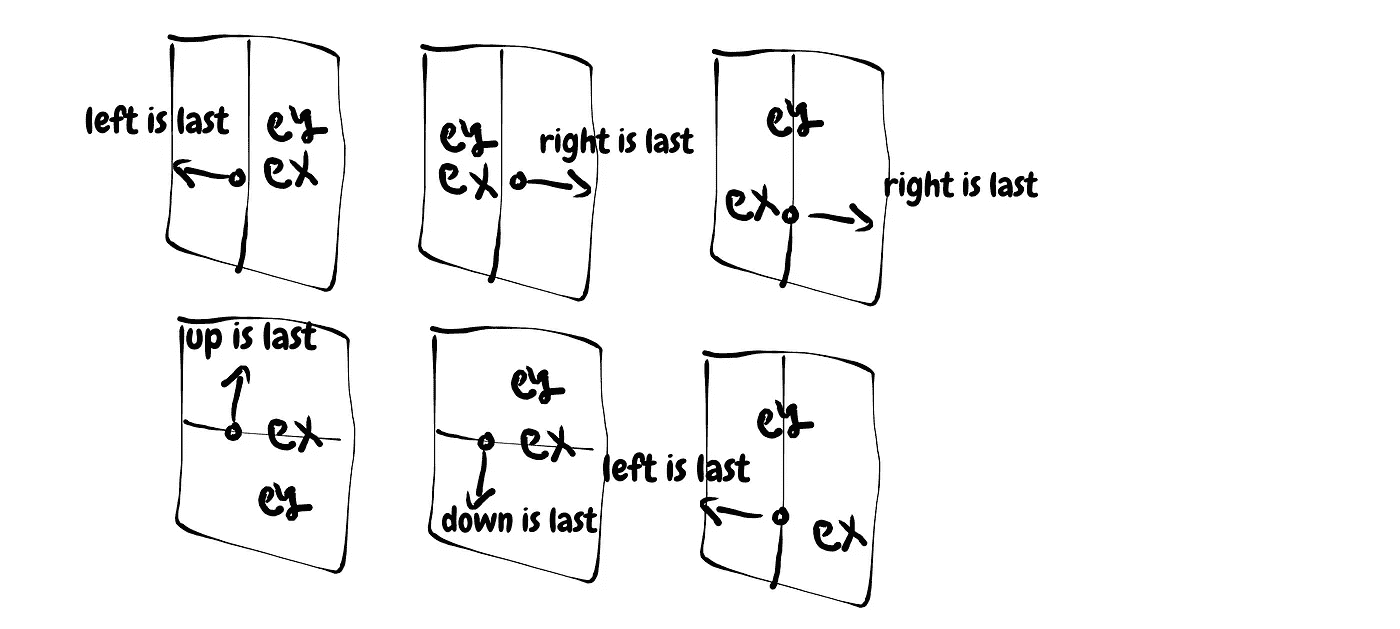 left is last
ey
ex
ey
ex
right is last
ey
ex
right is last
up is last
ex
ey
ey
ex
down is last
ey
left is last
ex